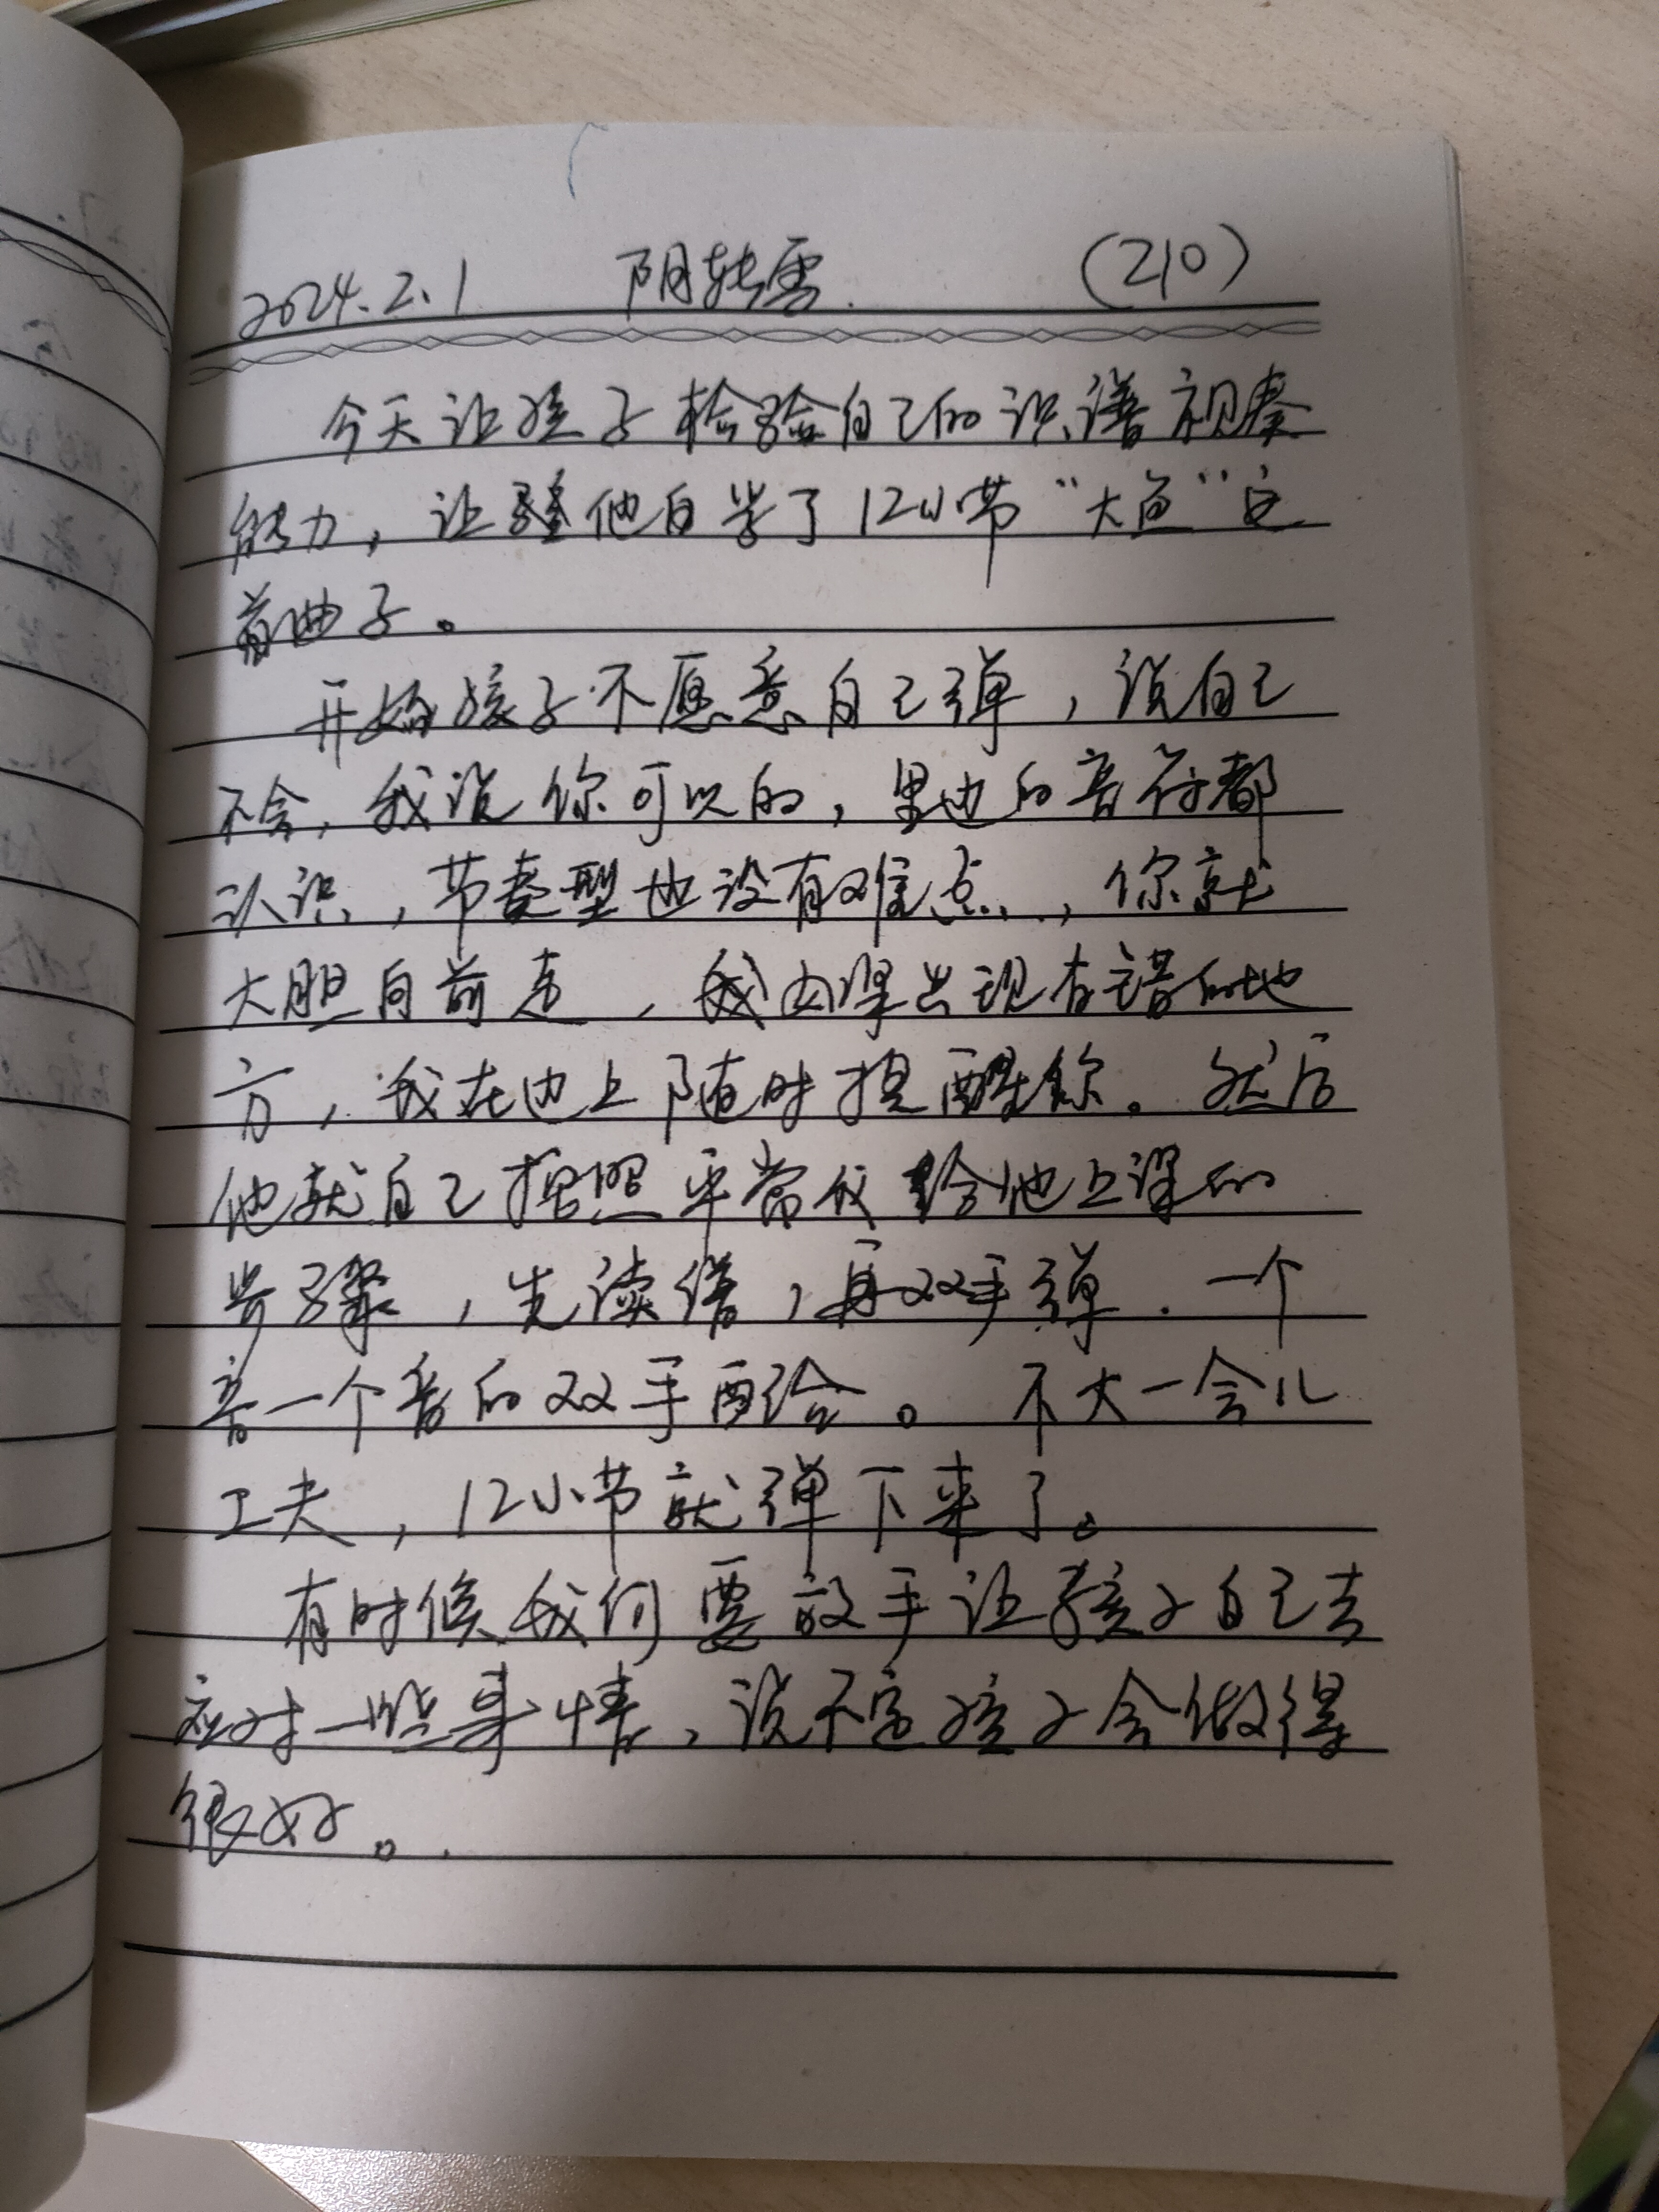 2024.2.1 阴转雪 (210)
今天让孩子检验自己的识谱视奏
能力，让他自学了12小节“大鱼”这
首曲子。
开始孩子不愿意自己弹，说自己
不会，我说你可以的，里边的音符都
认识，节奏型也没有难点，你就
大胆向前走，我出现有错的地
方，我在边上随时提醒你。然后
他就自己按照平常我给他上课的
步骤，先读谱，再双手弹.一个
音一个音的双手配合。不大一会儿
工夫，12小节就弹下来了。
有时候我们要放手让孩子自己去
应对一些事情，说不定孩子会做得
很好。